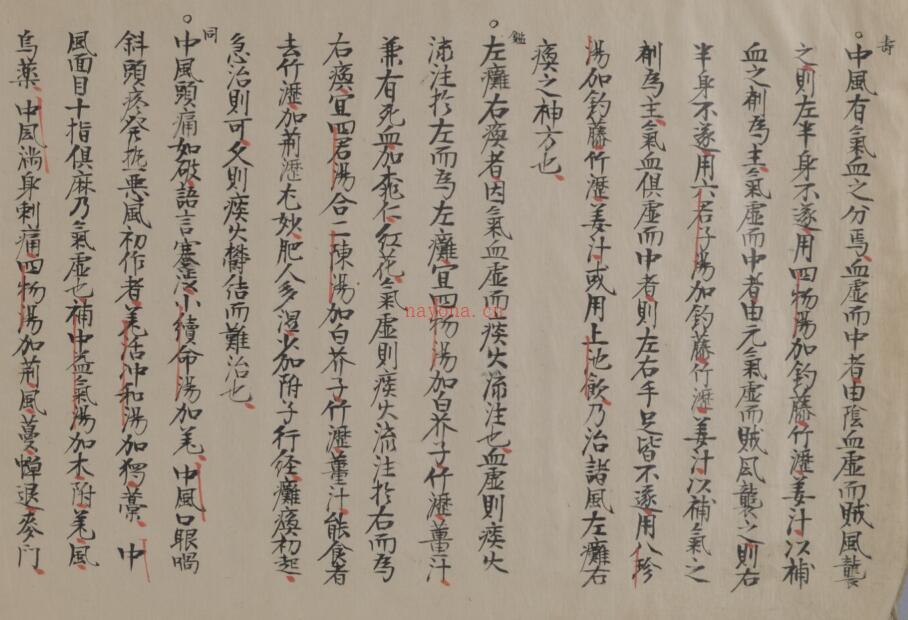 壽
中風有氣血之分焉血虛而中者由陰血虛而賊風襲
之則左半身不遂用四物湯加釣藤竹瀝姜汁以補
血之剤為主氣虛而中者由元氣虛而賊風襲之則右
半身不遂用六君子湯加釣藤竹瀝姜汁以補氣之
剤為主氣血俱虛而中者則左右手足皆不遂用八珍
湯加釣藤竹瀝姜汁或用上池飲乃治諸風左癱右
瘓之神方也
鑑
左癱右瘓者因氣血虛而痰火流注也血虛則痰火
流注於左而為左癱宜四物湯加白芥子竹瀝薑汁
兼有死血加桃仁紅花氣虛則痰火流注於右而為
右瘓宜四君湯合二陳湯加白芥子竹瀝薑汁能食者
去竹瀝加荊瀝尤妙肥人多湿少加附子行経癱瘓初起
急治則可久則痰火欝结而難治也
同
中風頭痛如破語言蹇澁小續命湯加羌中風口眼喎
斜頭疼発熱惡風初作者羗活冲和湯加獨藁中
風面目十指俱麻乃氣虛也補中益氣湯加木附羌風
烏薬中風満身刺痛四物湯加荊風蔓蟬退麥門
nayona.cn